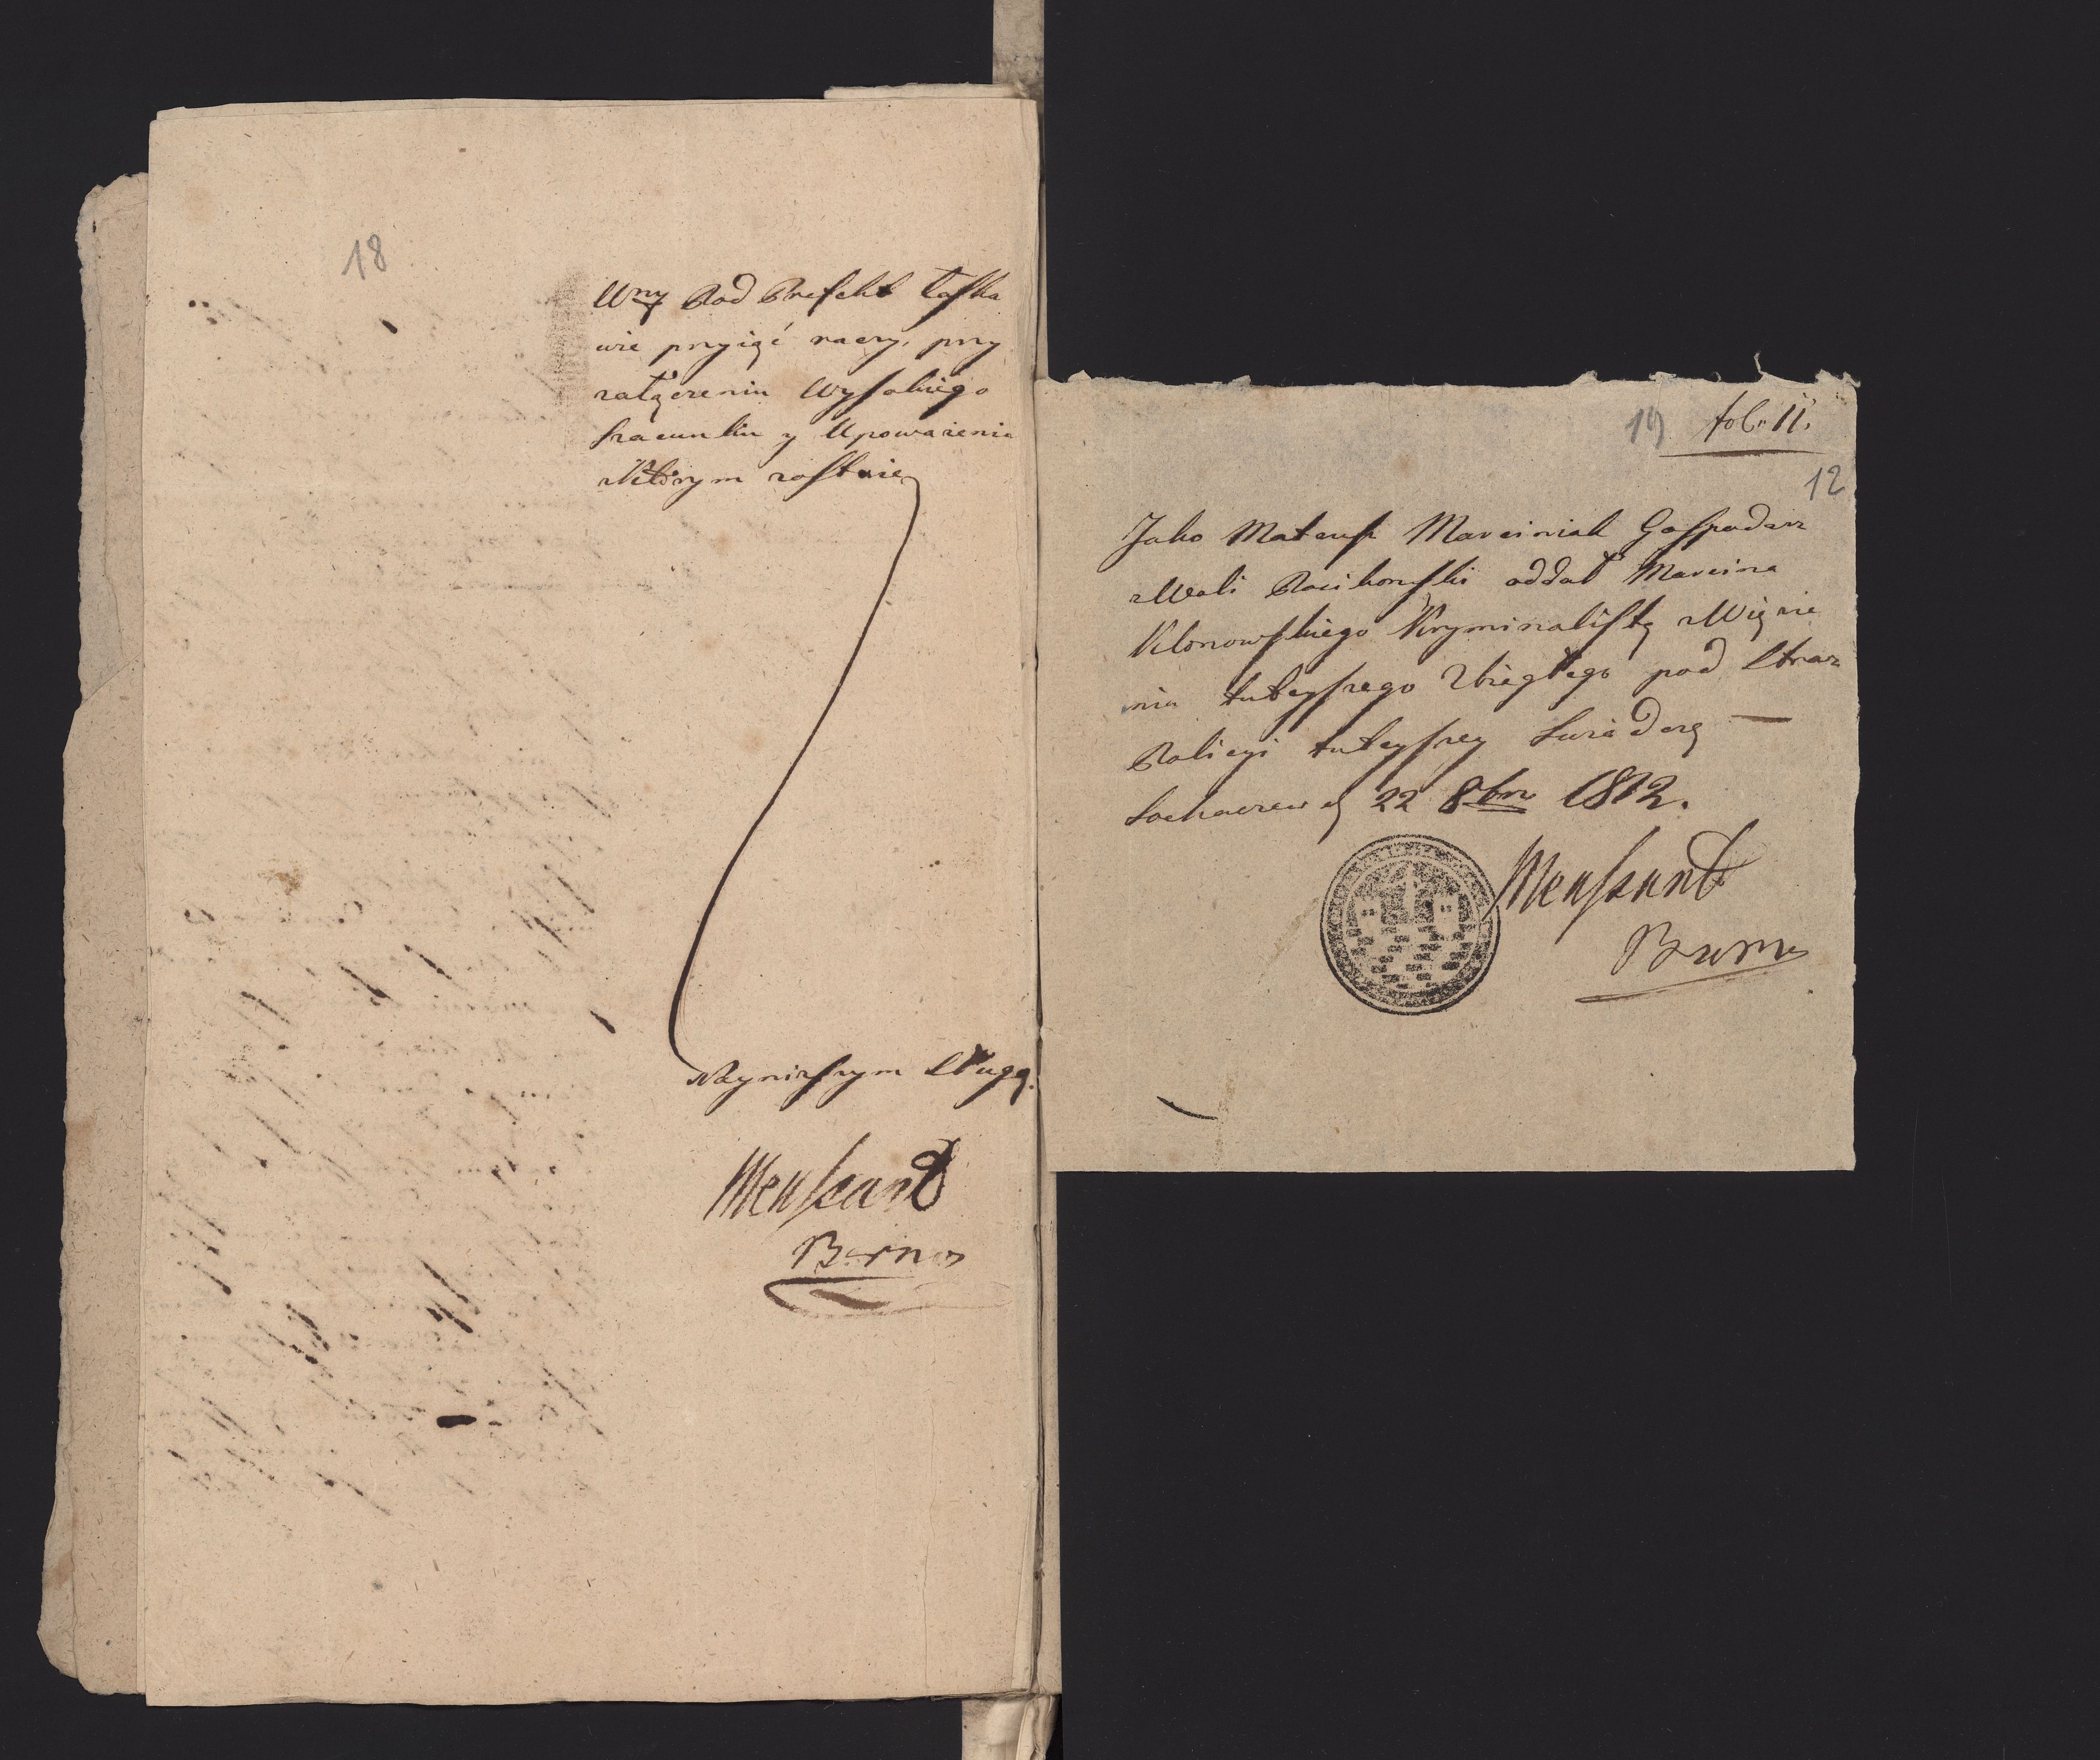 18
Wny Pod Prefekt łaska
wie przyiąć raczy, przy
załączeniu Wysokiego
Szacunku y Upoważenia
z Którym zostaie
Nayniższym sługą.
Meuszunt
Burm
19 fol. 11.
12
Jako Mateusz Marciniak Gospodarz
z Woli Pacikorski oddał Marcina
Klonowskiego Kryminalistę z Więzie
nia tuteyszego Zbiegłego pod Straz
Policyi tuteyszey Swiadczę —
Sochaczew d 22 8bra 1812.
Meuszunt
Burm